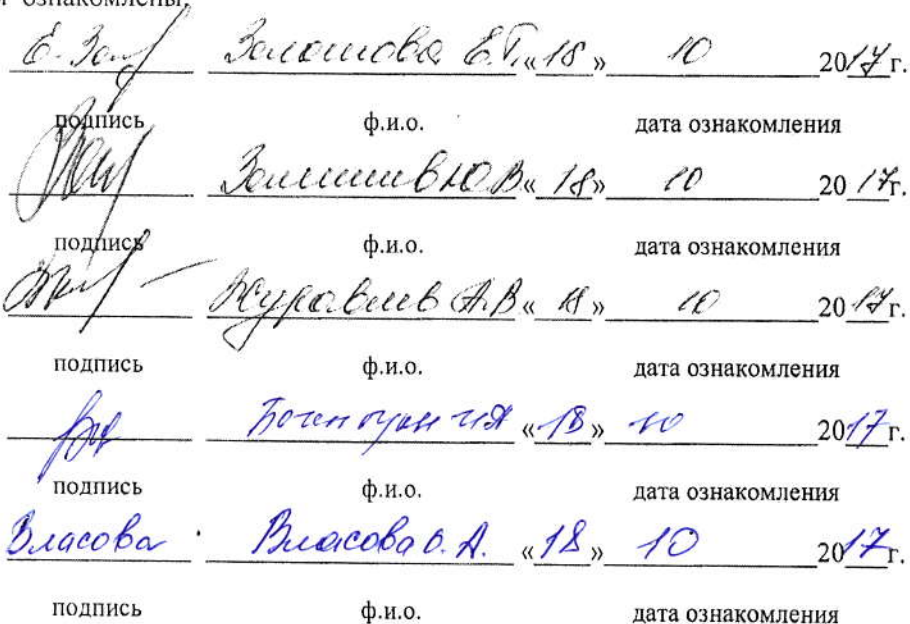 ознакомлены.
Е. Зол Золотова Е.Г. «18» 10 2017 г.
подпись ф.и.о. дата ознакомления
Ю.В. «18» 10 2017 г.
подпись ф.и.о. дата ознакомления
Журавлев А.В «18» 10 2017 г.
подпись ф.и.о. дата ознакомления
«18» 10 2017 г.
подпись ф.и.о. дата ознакомления
Власова Власова О.А. «18» 10 2017 г.
подпись ф.и.о. дата ознакомления